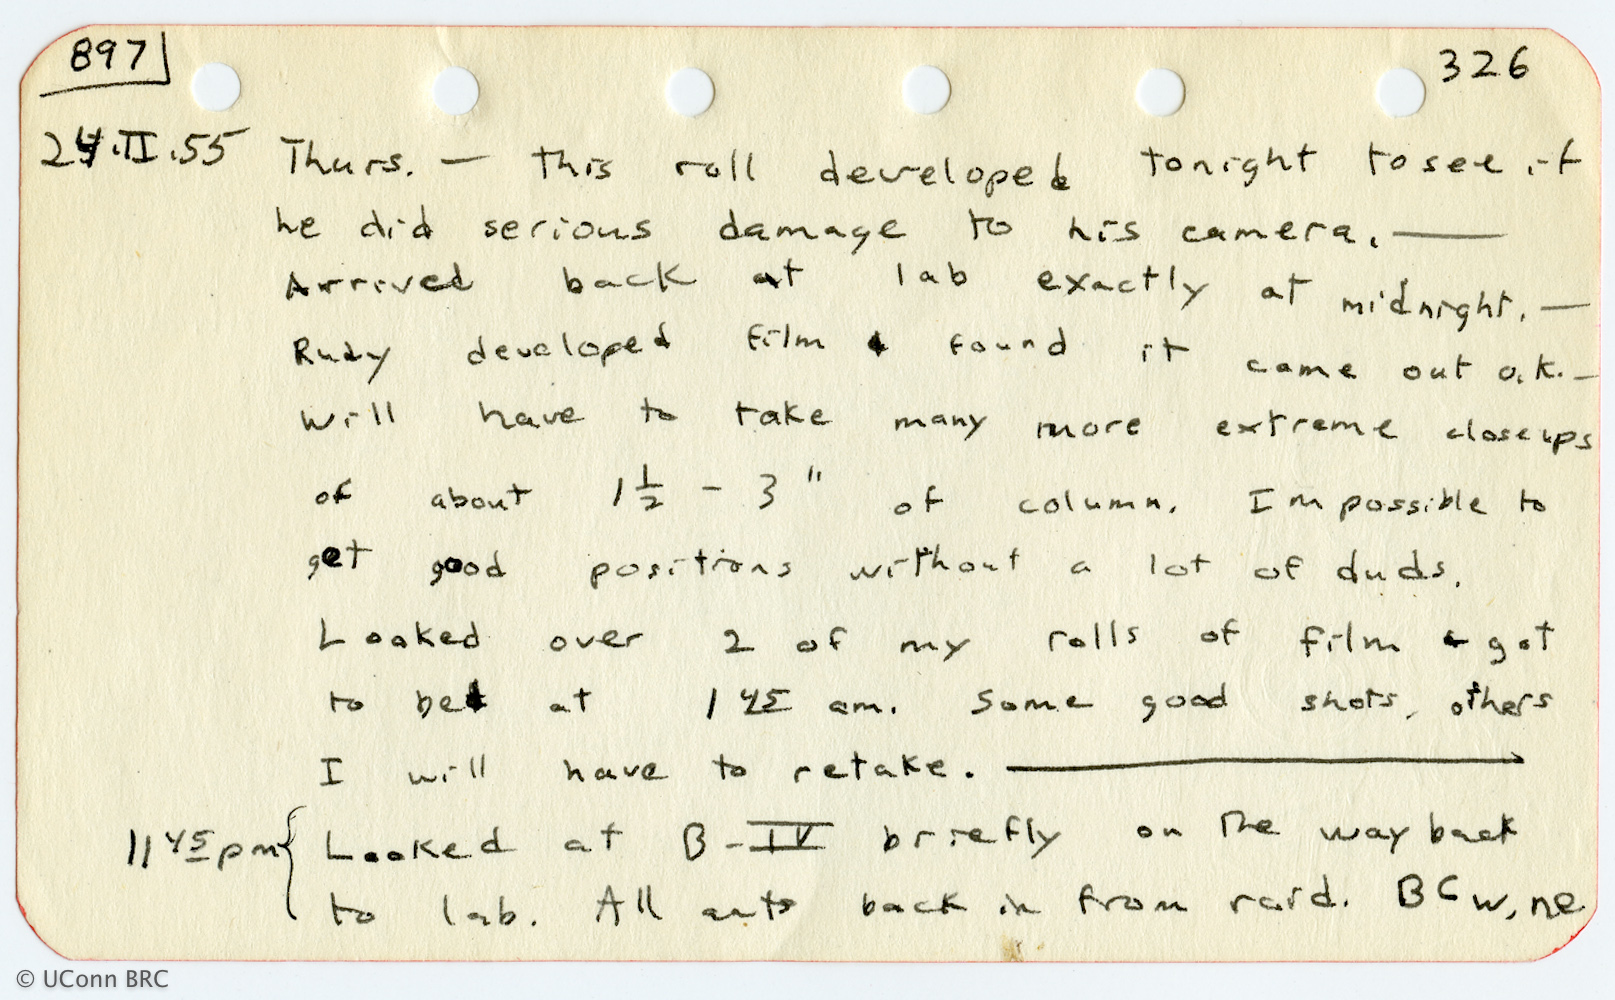 897
326
24.II.55 Thurs. — This roll developed tonight to see if
he did serious damage to his camera. —
Arrived back at lab exactly at midnight. —
Rudy developed film & found it came out o.k. —
Will have to take many more extreme closeups
of about 1½ - 3" of column. Impossible to
get good positions without a lot of duds.
Looked over 2 of my rolls of film & got
to bed at 1 45 am. Some good shots, others
I will have to retake. →
11 45 pm { Looked at B-IV briefly on the way back
to lab. All ants back in from raid. BC w, ne
© UConn BRC